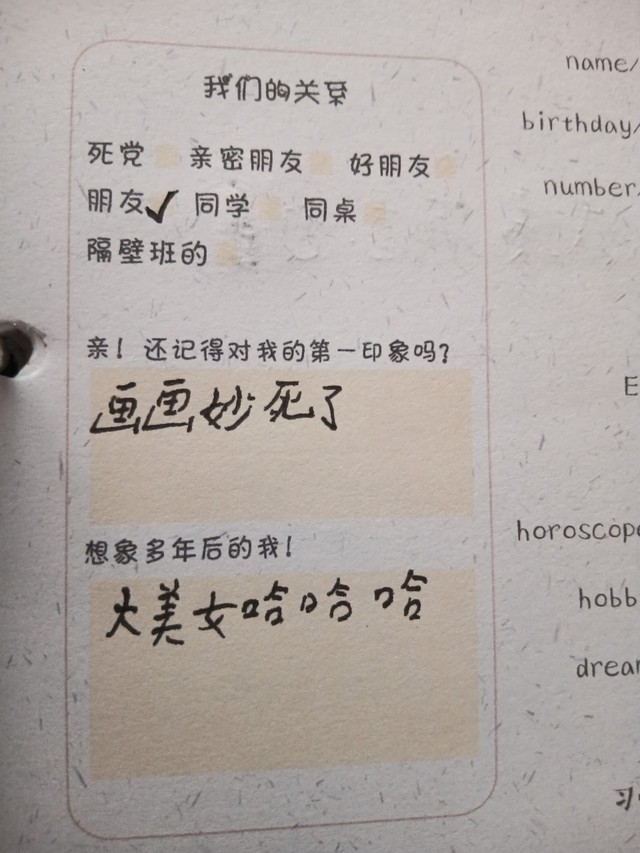 我们的关系
死党 亲密朋友 好朋友
朋友✓ 同学 同桌
隔壁班的
亲！还记得对我的第一印象吗？
画画妙死了
想象多年后的我！
大美女哈哈哈
name/
birthday/
number/
E
horoscope
hobb
drear
习